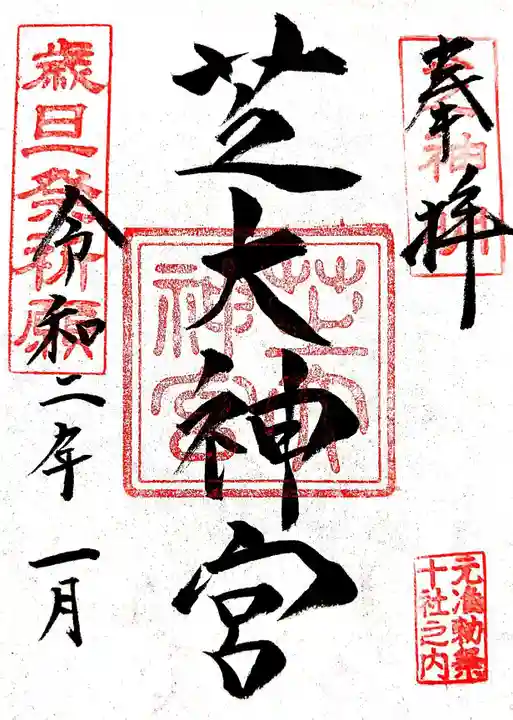 奉拝
元准勅祭
十社之内
芝大神宮
芝大
神宮
歳旦発祈願
令和二年 一月